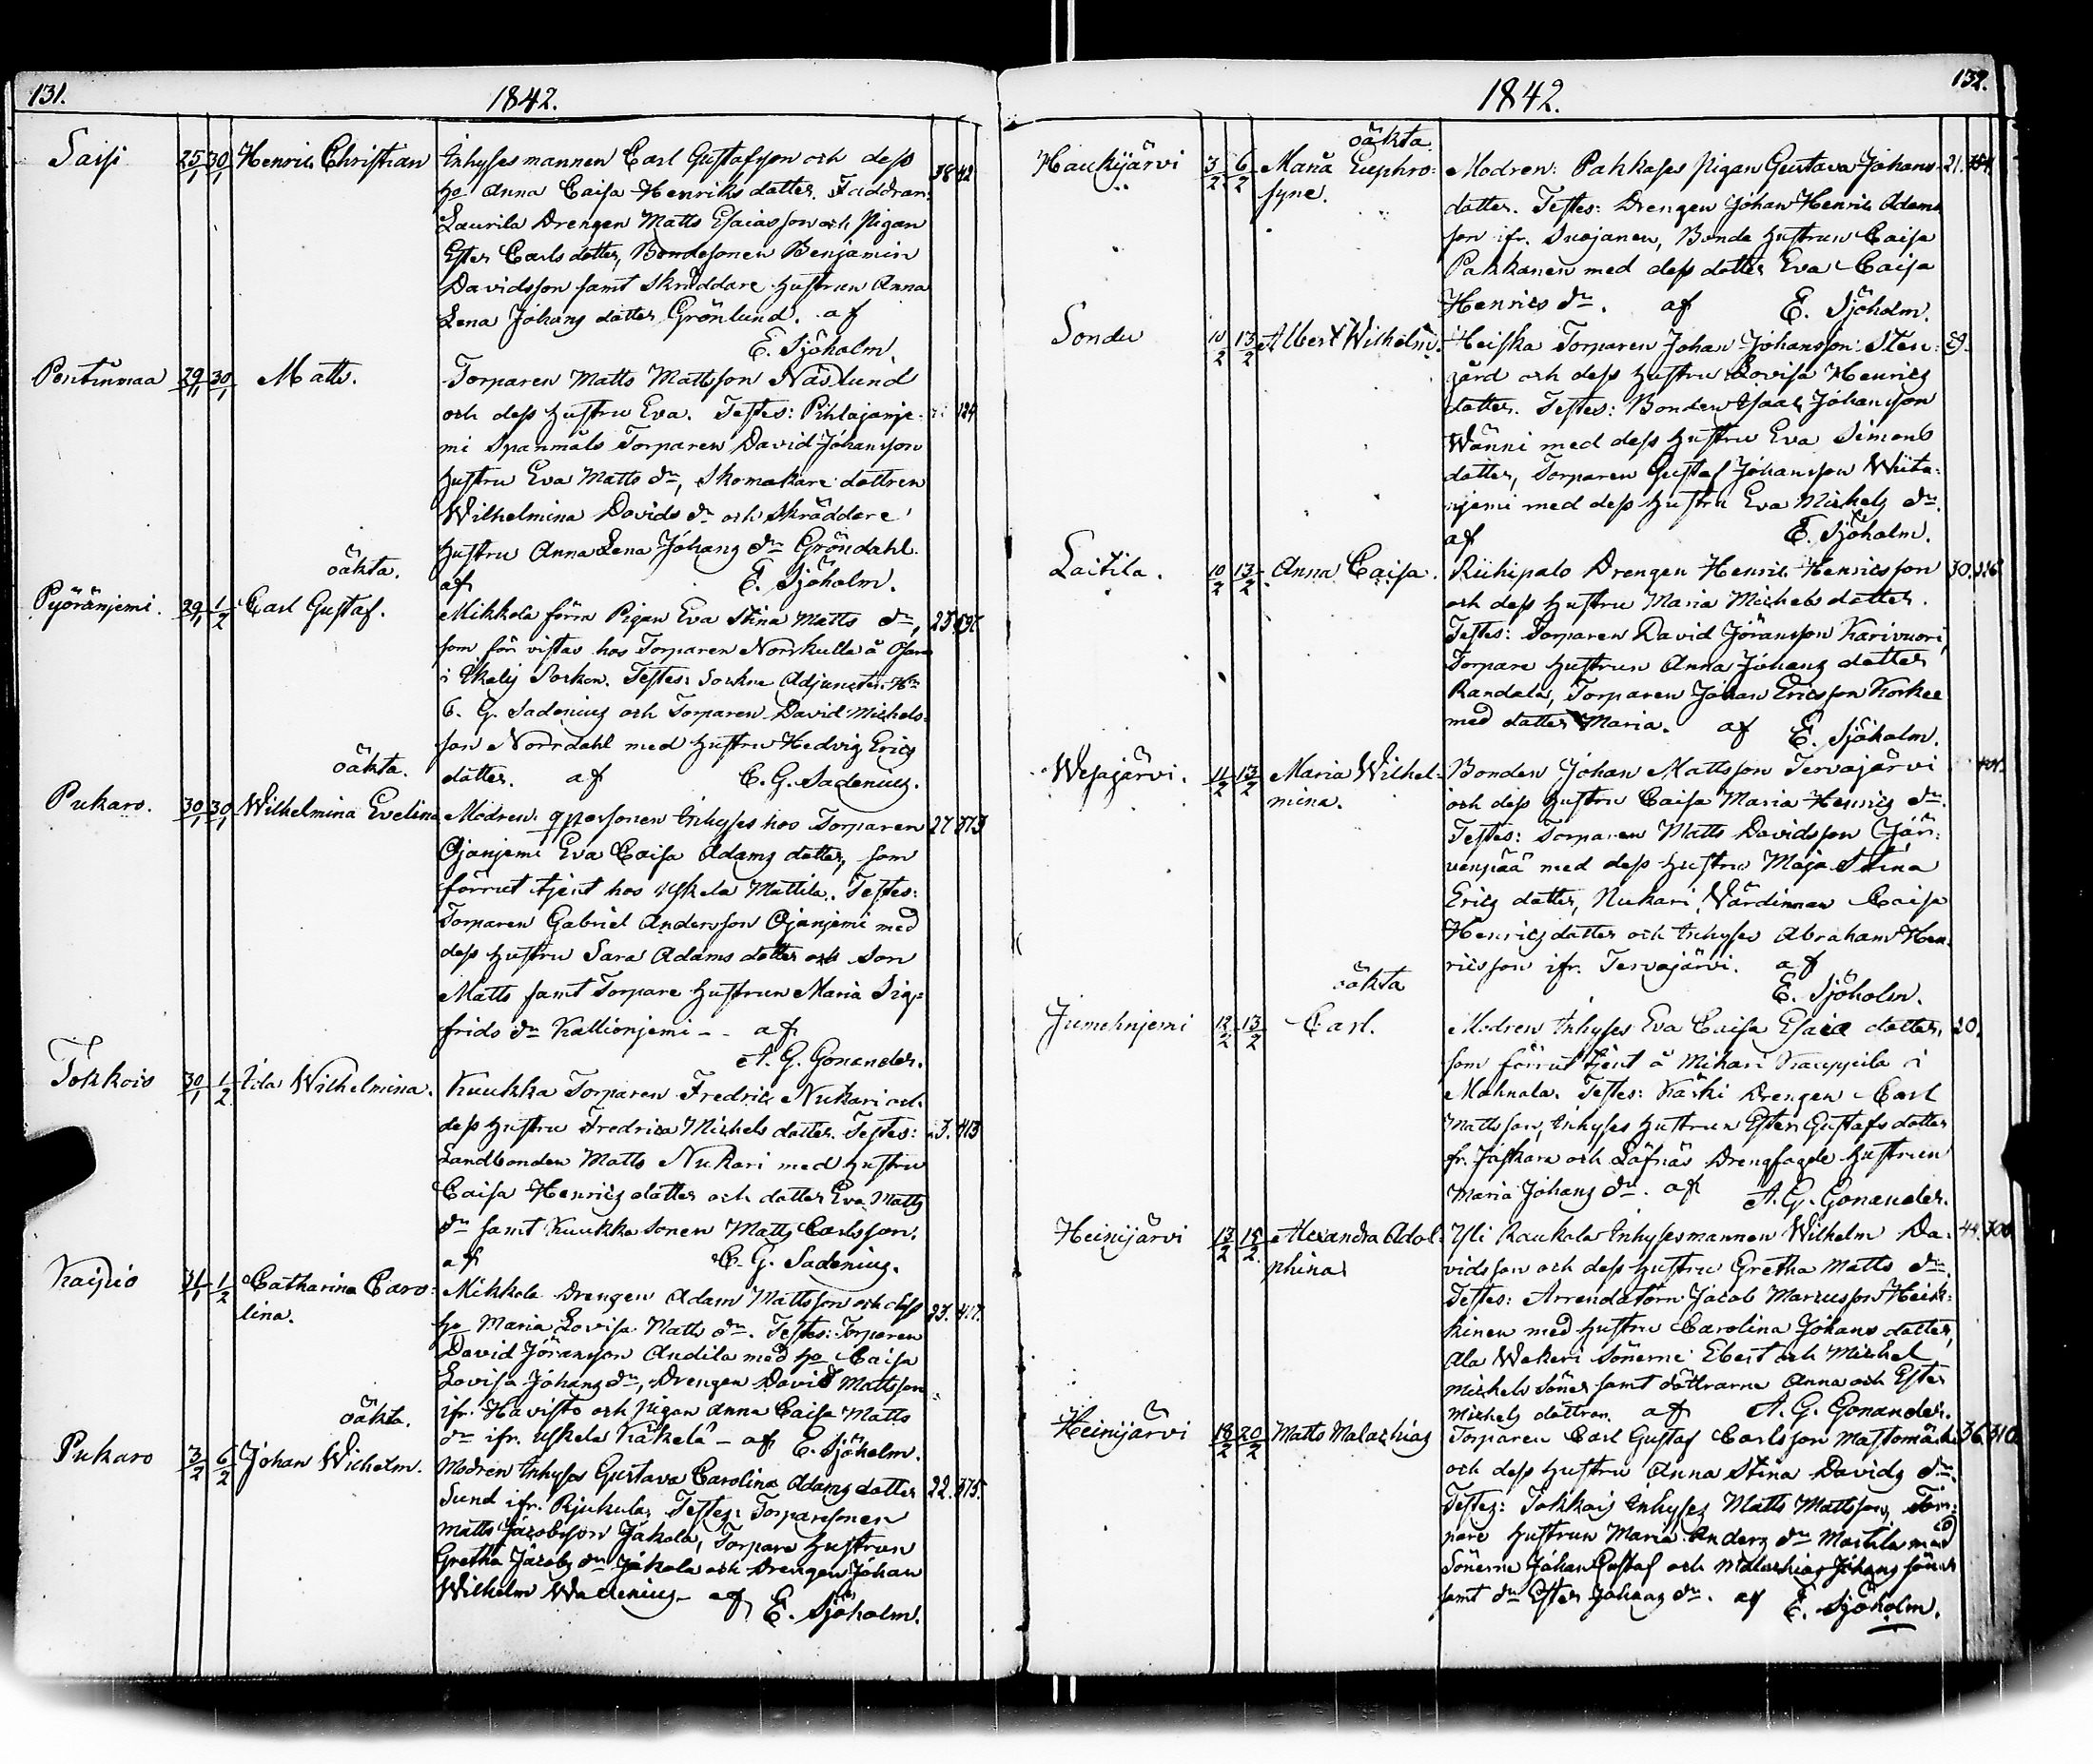 131.
1842.
Saisi 25/1 30/1 Henric Christian Inhysesmannen Carl Gustafsson och dess 38 42
ho Anna Caisa Henriks dotter. Faddrar:
Laurila Drengen Matts Esaiasson och Pigan
Ester Carls dotter, Bondesonen Benjamin
Davidsson samt Skräddare hustrun Anna
Lena Johans dotter Grönlund. af
E. Sjöholm.
Pentinmaa 29/1 30/1 Matts. Torparen Matts Mattsson Näslund
och dess hustru Eva. Testes: Pihlajanje- 124
mi Spannmåls Torparen David Johansson
hustru Eva Matts dr, Skomakare dottren
Wilhelmina Davids dr och Skräddare
hustru Anna Lena Johans dr Gröndahl.
öäkta. af E. Sjöholm.
Pyöränjemi. 29/1 1/2 Carl Gustaf. Mikkola förra Pigan Eva Stina Matts dr, 25
som för vistas hos Torparen Norrkulla å
i Ikalis Sorken. Testes: Sockne Adjuncten Hr
C. G. Sadenius och Torparen David Michels-
son Norrdahl med hustru Hedvig Erics
öäkta. dotter. af C. G. Sadenius.
Pukaro. 30/1 30/1 Wilhelmina Evelina Modren qpersonen Inhyses hos Torparen 27 373
Ojanjemi Eva Caisa Adams dotter, som
förrut tjent hos Uskela Mattila. Testes:
Torparen Gabriel Andersson Ojanjemi med
dess hustru Sara Adams dotter och Son
Matts samt Torpare hustrun Maria Sig-
frids dr Kallionjemi - - af
A. G. Gonander.
Tokkois 30/1 1/2 Ida Wilhelmina. Kuukka Torparen Fredric Nukari och
dess hustru Fredrica Michels dotter. Testes: 413
Landbonden Matts Nukari med hustru
Caisa Henrics dotter och dotter Eva Matts
dr samt Kuukka Sonen Matts Carlsson.
af C. G. Sadenius.
Kaipio 31/1 1/2 Catharina Caro- Mikkola Drengen Adam Mattsson och dess
lina. ho Maria Lovisa Matts dr. Testes: Torparen 23.
David Jöransson Andila med ho Caisa
Lovisa Johans dr, Drengen David Mattsson
ifr. Havisto och Pigan Anna Caisa Matts
öäkta. dr ifr. Uskela Käkelä - af E. Sjöholm.
Pukaro 3/2 6/2 Johan Wilhelm. Modren Inhyses Gustava Carolina Adams dotter 22. 375.
Sund ifr. Rjukula, Testes: Torparesonen
Matts Jacobsson Jakola, Torpare hustrun
Gretha Jacobs dr Jakola och Drengen Johan
Wilhelm Wadenius - af E. Sjöholm.
1842.
132.
öäkta.
Haukijärvi 3/2 6/2 Maria Euphro- Modren: Pakkases Pigan Gustava Johans- 21.
syne. dotter. Testes: Drengen Johan Henric Adams
son ifr. Suojanen, Bonde hustrun Caisa
Pakkanen med dess dotter Eva Caisa
Henrics dr. af E. Sjöholm.
Sondu 10/2 13/2 Albert Wilhelm. Heiska Torparen Johan Johansson Sten-
gård och dess hustru Lovisa Henrics
dotter. Testes: Bonden Isaac Johansson
Wänni med dess hustru Eva Simons
dotter, Torparen Gustaf Johansson Wiita-
njemi med dess hustru Eva Michels dr.
af E. Sjöholm.
Laitila. 10/2 13/2 Anna Caisa. Riihipalo Drengen Henric Henricsson 30.
och dess hustru Maria Michels dotter.
Testes: Torparen David Jöransson Karivuori,
Torpare hustrun Anna Johans dotter
Randala, Torparen Johan Ericsson Korkee
med dotter Maria. af E. Sjöholm.
Wesajärvi. 11/2 13/2 Maria Wilhel- Bonden Johan Mattsson Tervajärvi
mina. och dess hustru Caisa Maria Henrics dr.
Testes: Torparen Matts Davidsson Jär-
venpää med dess hustru Maja Stina
Erics dotter, Nukari Värdinnan Caisa
Henrics dotter och Inhyses Abraham Hen-
ricsson ifr. Tervajärvi. af
öäkta E. Sjöholm.
Jumehnjemi 12/2 13/2 Carl. Modren Inhyses Eva Caisa Esaiæ dotter, 20.
som förrut tjent å Mihari Kauppila i
Mahnala. Testes: Käski Drengen Carl
Mattsson, Inhyses hustrun Ester Gustafs dotter
fr. Jaskara och Läfnäs Drengfogde hustrun
Maria Johans dr. af A. G. Gonander.
Heinijärvi 13/2 15/2 Alexandra Adol- Yli Raukala Inhysesmannen Wilhelm Da- 44. 300
phina vidsson och dess hustru Gretha Matts dr.
Testes: Arrendatorn Jacob Marcusson Heik-
kinen med hustru Carolina Johans dotter,
Ala Wakeri Sönerne Ebert och Michel
Michels söner samt döttrarne Anna och Ester
Michels döttrar. af A. G. Gonander.
Heinijärvi 18/2 20/2 Matts Malachias Torparen Carl Gustaf Carlsson Mastomäki 36 310
och dess hustru Anna Stina Davids dr.
Testes: Tokkois Inhyses Matts Mattsson, Tor-
pare hustrun Maria Anders dr Mattila med
Sönerne Johan Gustaf och Malachias Johans söner
samt dr Ester Johans dr. af E. Sjöholm.